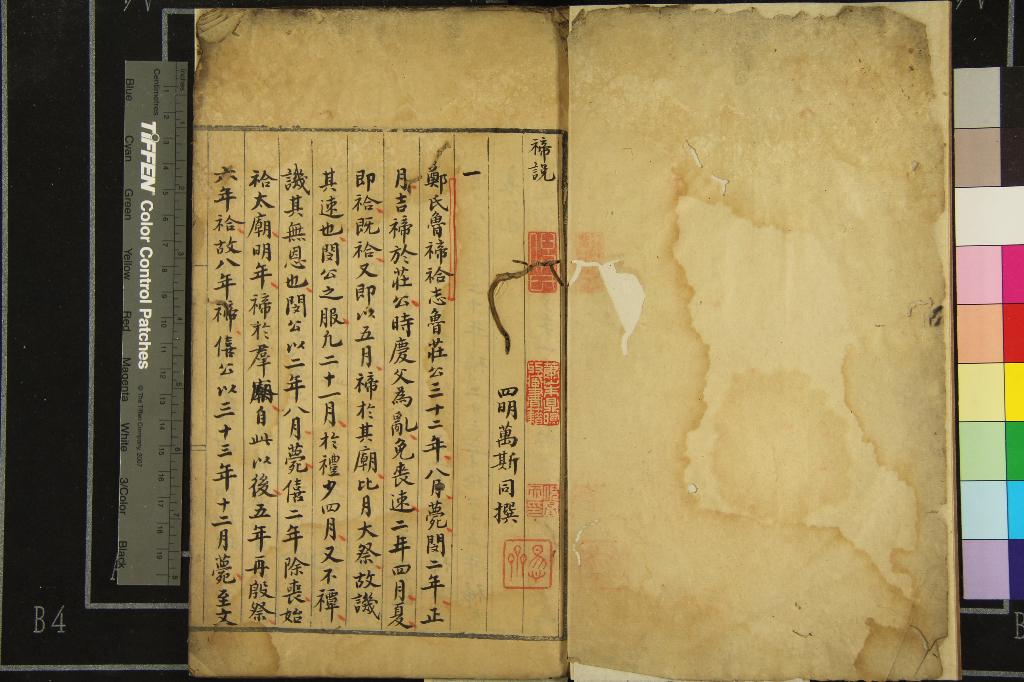 禘說
四明萬斯同撰
一
鄭氏魯禘祫志魯莊公三十二年八月薨閔二年正
月吉禘於莊公時慶父為亂免喪速二年四月夏
即祫既祫又即以五月禘於其廟比月大祭故譏
其速也閔公之服凢二十一月於禮少四月又不禫
譏其無恩也閔公以二年八月薨僖二年除喪始
祫太廟明年禘於羣廟自此以後五年再殷祭
六年祫故八年禘僖公以三十三年十二月薨至文
TIFFEN Color Control Patches
© The Tiffen Company, 2007
Inches
Centimetres
Blue Cyan Green Yellow Red Magenta White 3/Color Black
B4